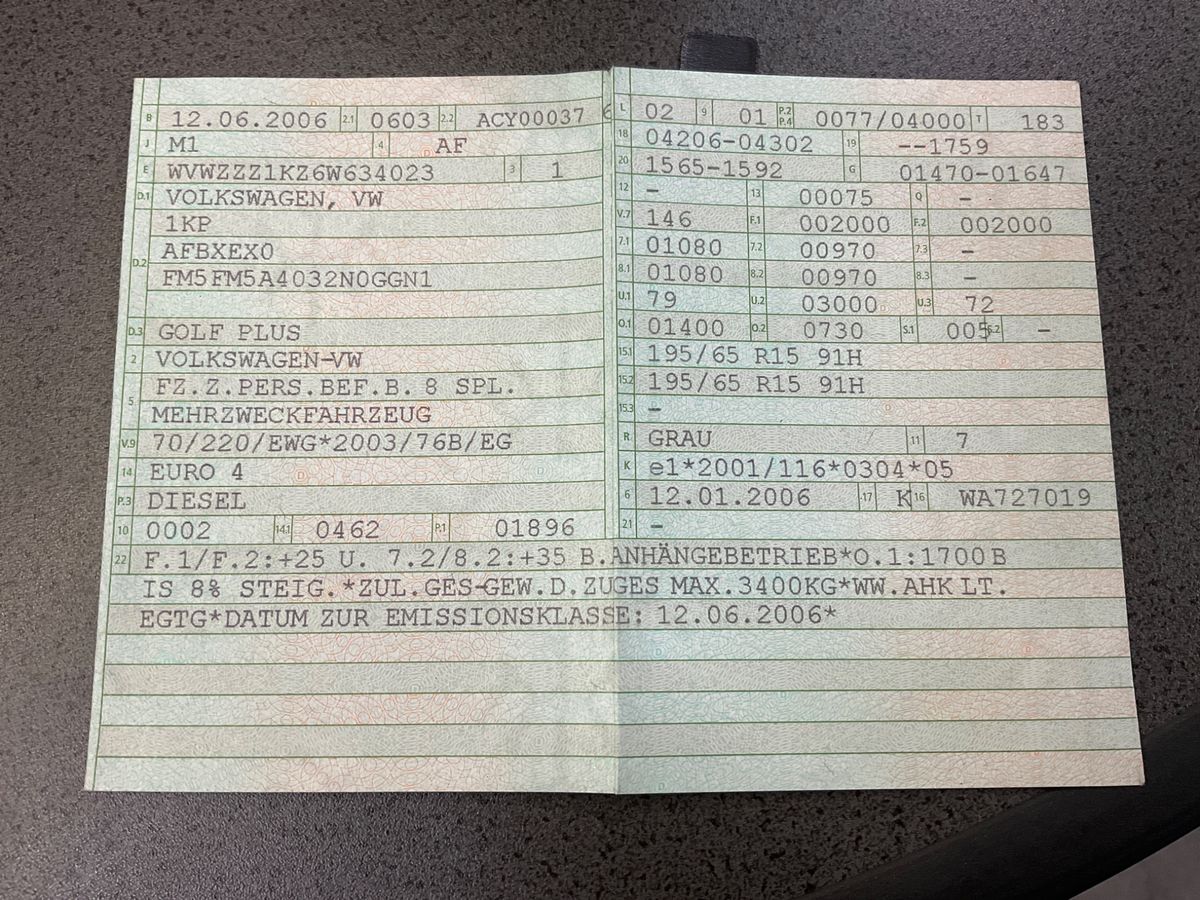 B 12.06.2006 2.1 0603 2.2 ACY00037 6
J M1 4 AF
E WVWZZZ1KZ6W634023 3 1
D.1 VOLKSWAGEN, VW
1KP
D.2 AFBXEX0
FM5FM5A4032N0GGN1
D.3 GOLF PLUS
2 VOLKSWAGEN-VW
5 FZ.Z.PERS.BEF.B. 8 SPL.
MEHRZWECKFAHRZEUG
V.9 70/220/EWG*2003/76B/EG
14 EURO 4
P.3 DIESEL
10 0002 14.1 0462 P.1 01896
L 02 9 01 P.2 P.4 0077/04000 T 183
18 04206-04302 19 --1759
20 1565-1592 G 01470-01647
12 - 13 00075 Q -
V.7 146 F.1 002000 F.2 002000
7.1 01080 7.2 00970 7.3 -
8.1 01080 8.2 00970 8.3 -
U.1 79 U.2 03000 U.3 72
O.1 01400 O.2 0730 S.1 005 S.2 -
15.1 195/65 R15 91H
15.2 195/65 R15 91H
15.3 -
R GRAU 11 7
K e1*2001/116*0304*05
6 12.01.2006 17 K 16 WA727019
21 -
22 F.1/F.2:+25 U. 7.2/8.2:+35 B.ANHÄNGEBETRIEB*O.1:1700 B
IS 8% STEIG.*ZUL.GES-GEW.D.ZUGES MAX.3400KG*WW.AHK LT.
EGTG*DATUM ZUR EMISSIONSKLASSE: 12.06.2006*